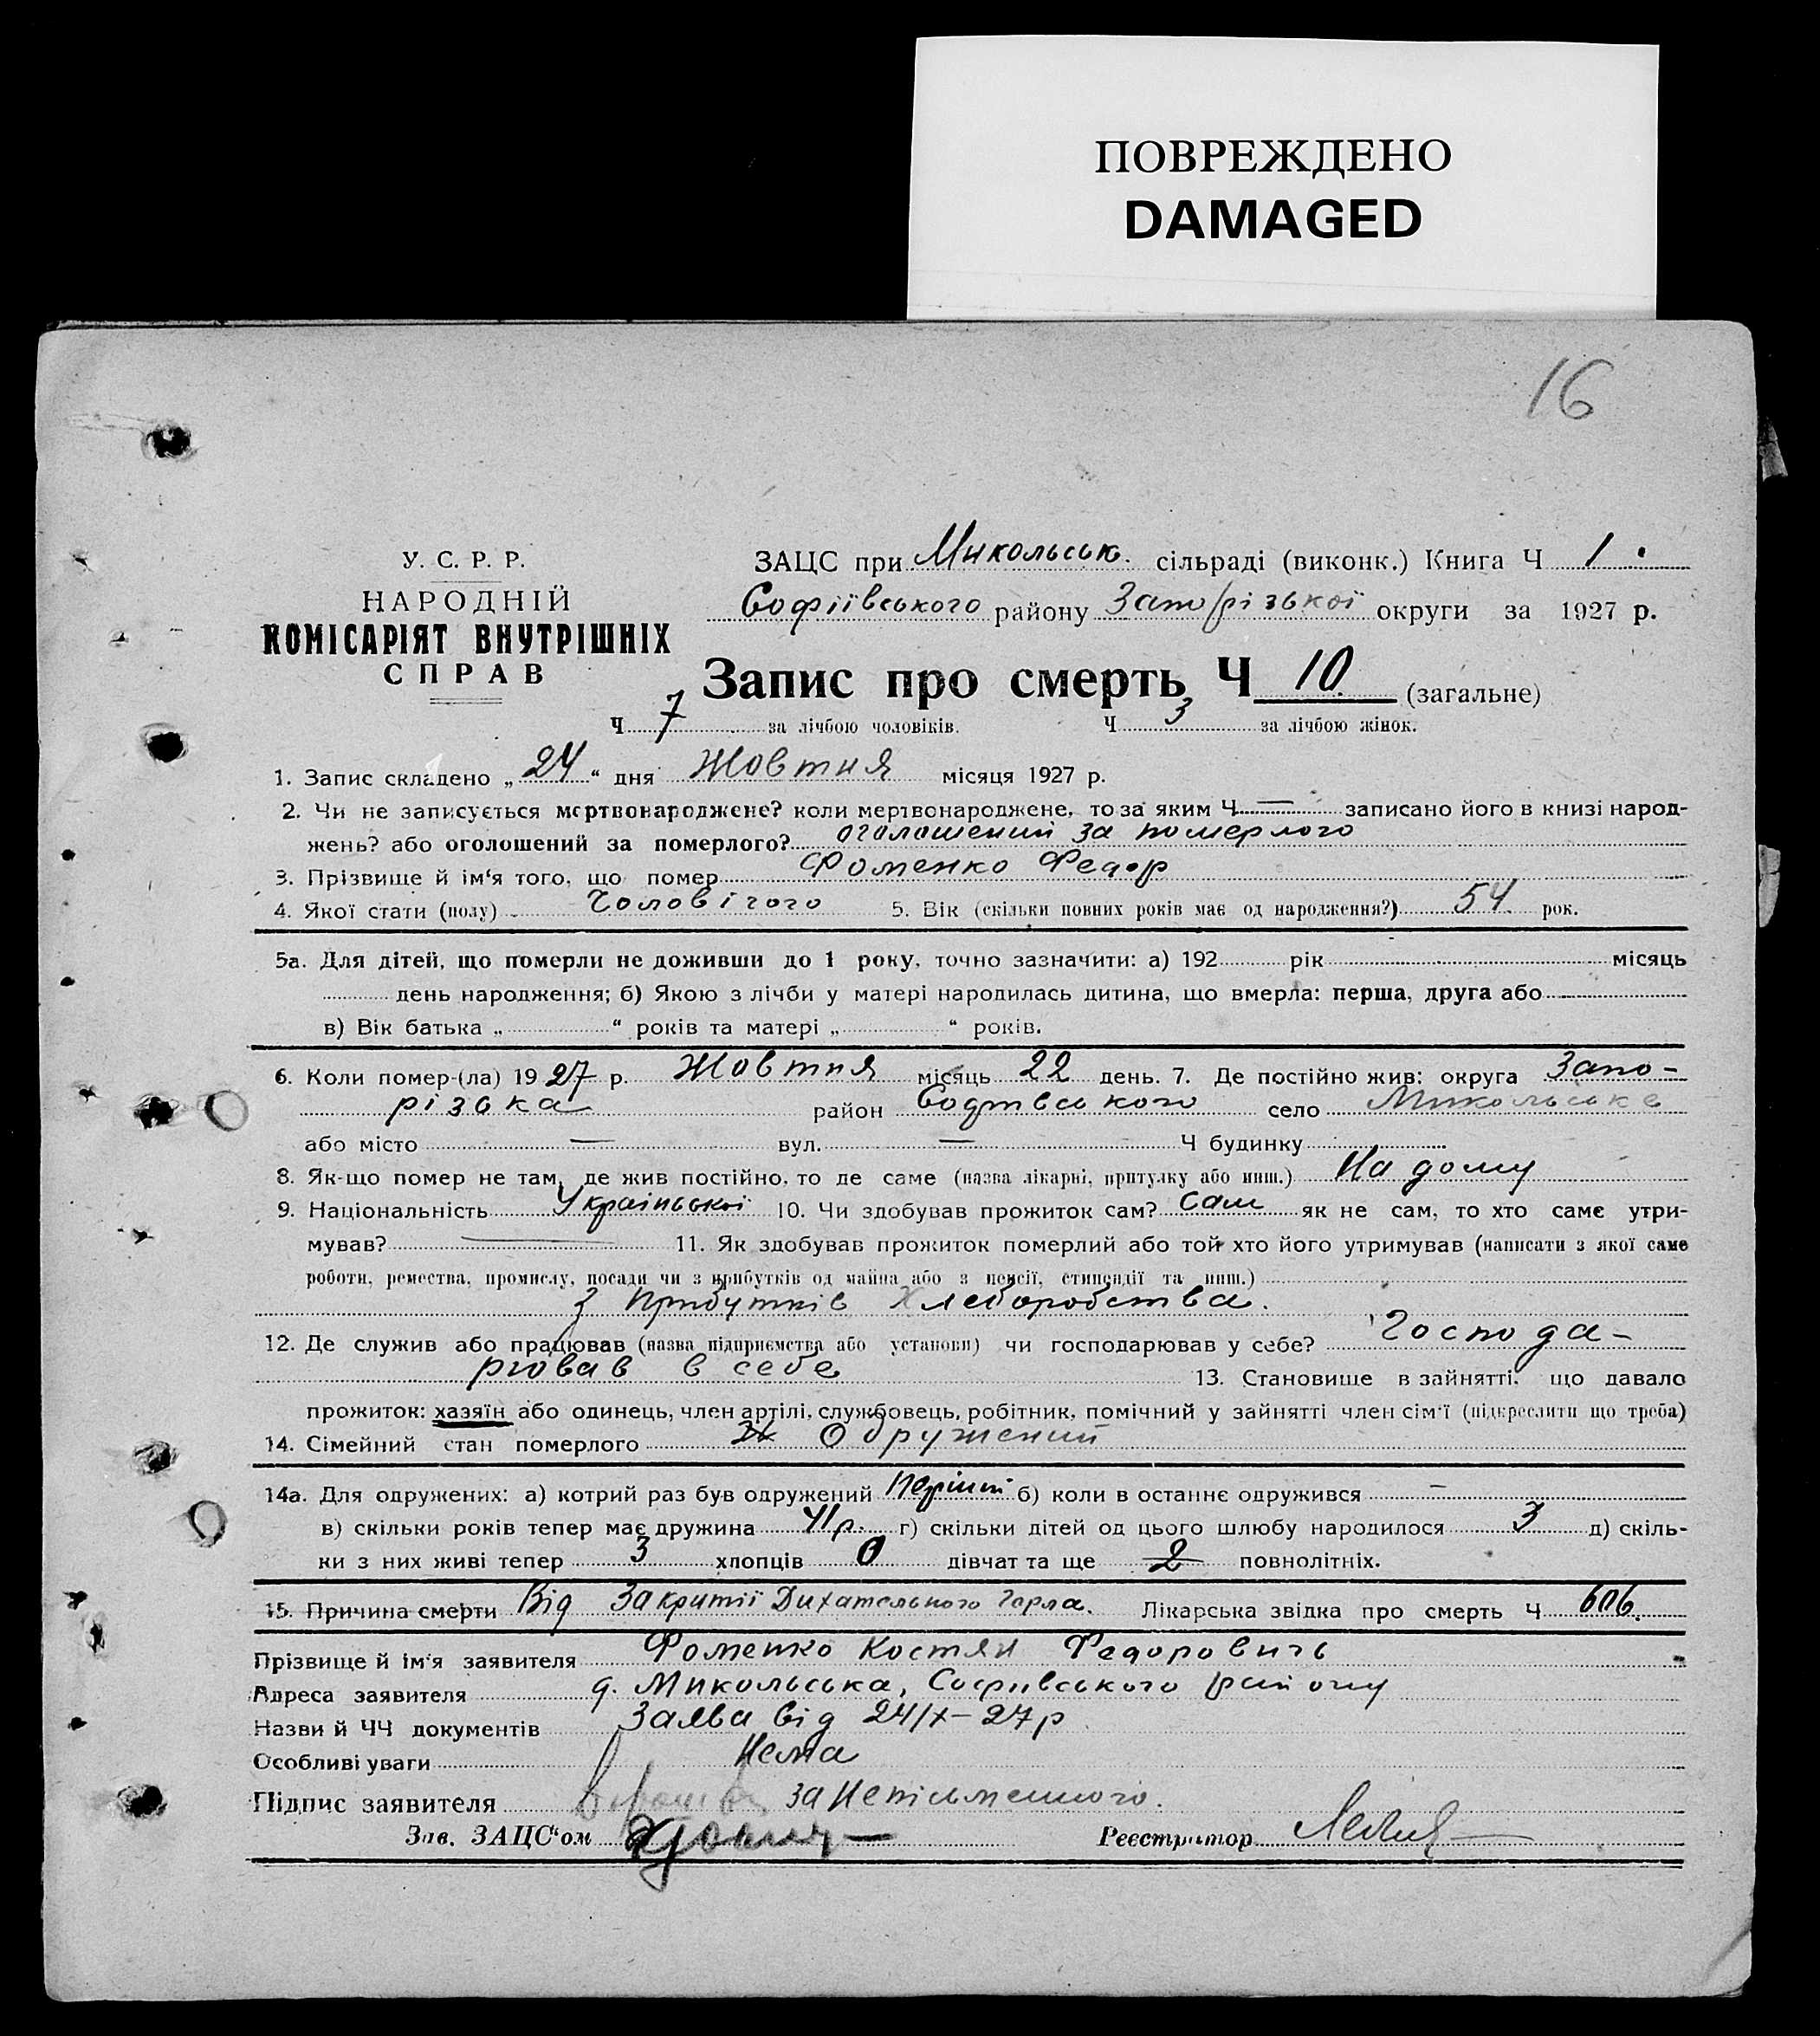 ПОВРЕЖДЕНО
DAMAGED
16
У. С. Р. Р.
НАРОДНІЙ
КОМІСАРІЯТ ВНУТРІШНІХ
СПРАВ
ЗАЦС при Микольськ. сільраді (виконк.) Книга Ч 1.
Софіївського району Запорізької округи за 1927 р.
Запис про смерть Ч 10. (загальне)
Ч 7 за лічбою чоловіків. Ч 3 за лічбою жінок.
1. Запис складено „24“ дня Жовтня місяця 1927 р.
2. Чи не записується мертвонароджене? коли мертвонароджене, то за яким Ч — записано його в книзі народ-
жень? або оголошений за померлого? оголошений за померлого
3. Прізвище й ім‘я того, що помер Фоменко Федор
4. Якої стати (полу) Чоловічого 5. Вік (скільки повних років має од народження?) 54 рок.
5а. Для дітей, що померли не доживши до 1 року, точно зазначити: а) 192 рік місяць
день народження; б) Якою з лічби у матері народилась дитина, що вмерла: перша, друга або
в) Вік батька „ “ років та матері „ “ років.
6. Коли помер-(ла) 1927 р. Жовтня місяць 22 день. 7. Де постійно жив: округа Запо-
різька район село Микольське
або місто — вул. — Ч будинку
8. Як-що помер не там, де жив постійно, то де саме (назва лікарні, притулку або инш.) На дому
9. Національність Української 10. Чи здобував прожиток сам? Сам як не сам, то хто саме утри-
мував? — 11. Як здобував прожиток померлий або той хто його утримував (написати з якої саме
роботи, ремества, промислу, посади чи з прибутків од майна або з пенсії, стипендії та инш.)
З прибутків Хлеборобства.
12. Де служив або працював (назва підприємства або установи) чи господарював у себе? Господа-
рював в себе 13. Становище в зайнятті, що давало
прожиток: хазяїн або одинець, член артілі, службовець, робітник, помічний у зайнятті член сім‘ї (підкреслити що треба)
14. Сімейний стан померлого Одружений
14а. Для одружених: а) котрий раз був одружений Перший б) коли в останнє одружився —
в) скільки років тепер має дружина 41 р. г) скільки дітей од цього шлюбу народилося 3 д) скіль-
ки з них живі тепер 3 хлопців 0 дівчат та ще 2 повнолітніх.
15. Причина смерти Від Закритії Дихательного Горла. Лікарська звідка про смерть Ч 606.
Прізвище й ім‘я заявителя Фоменко Костян Федоровичь
Адреса заявителя д. Микольська, Софіївського району
Назви й ЧЧ документів Заява від 24/X-27р
Особливі уваги Нема
Підпис заявителя за Непісьменного.
Зав. ЗАЦС“ом Реєстратор